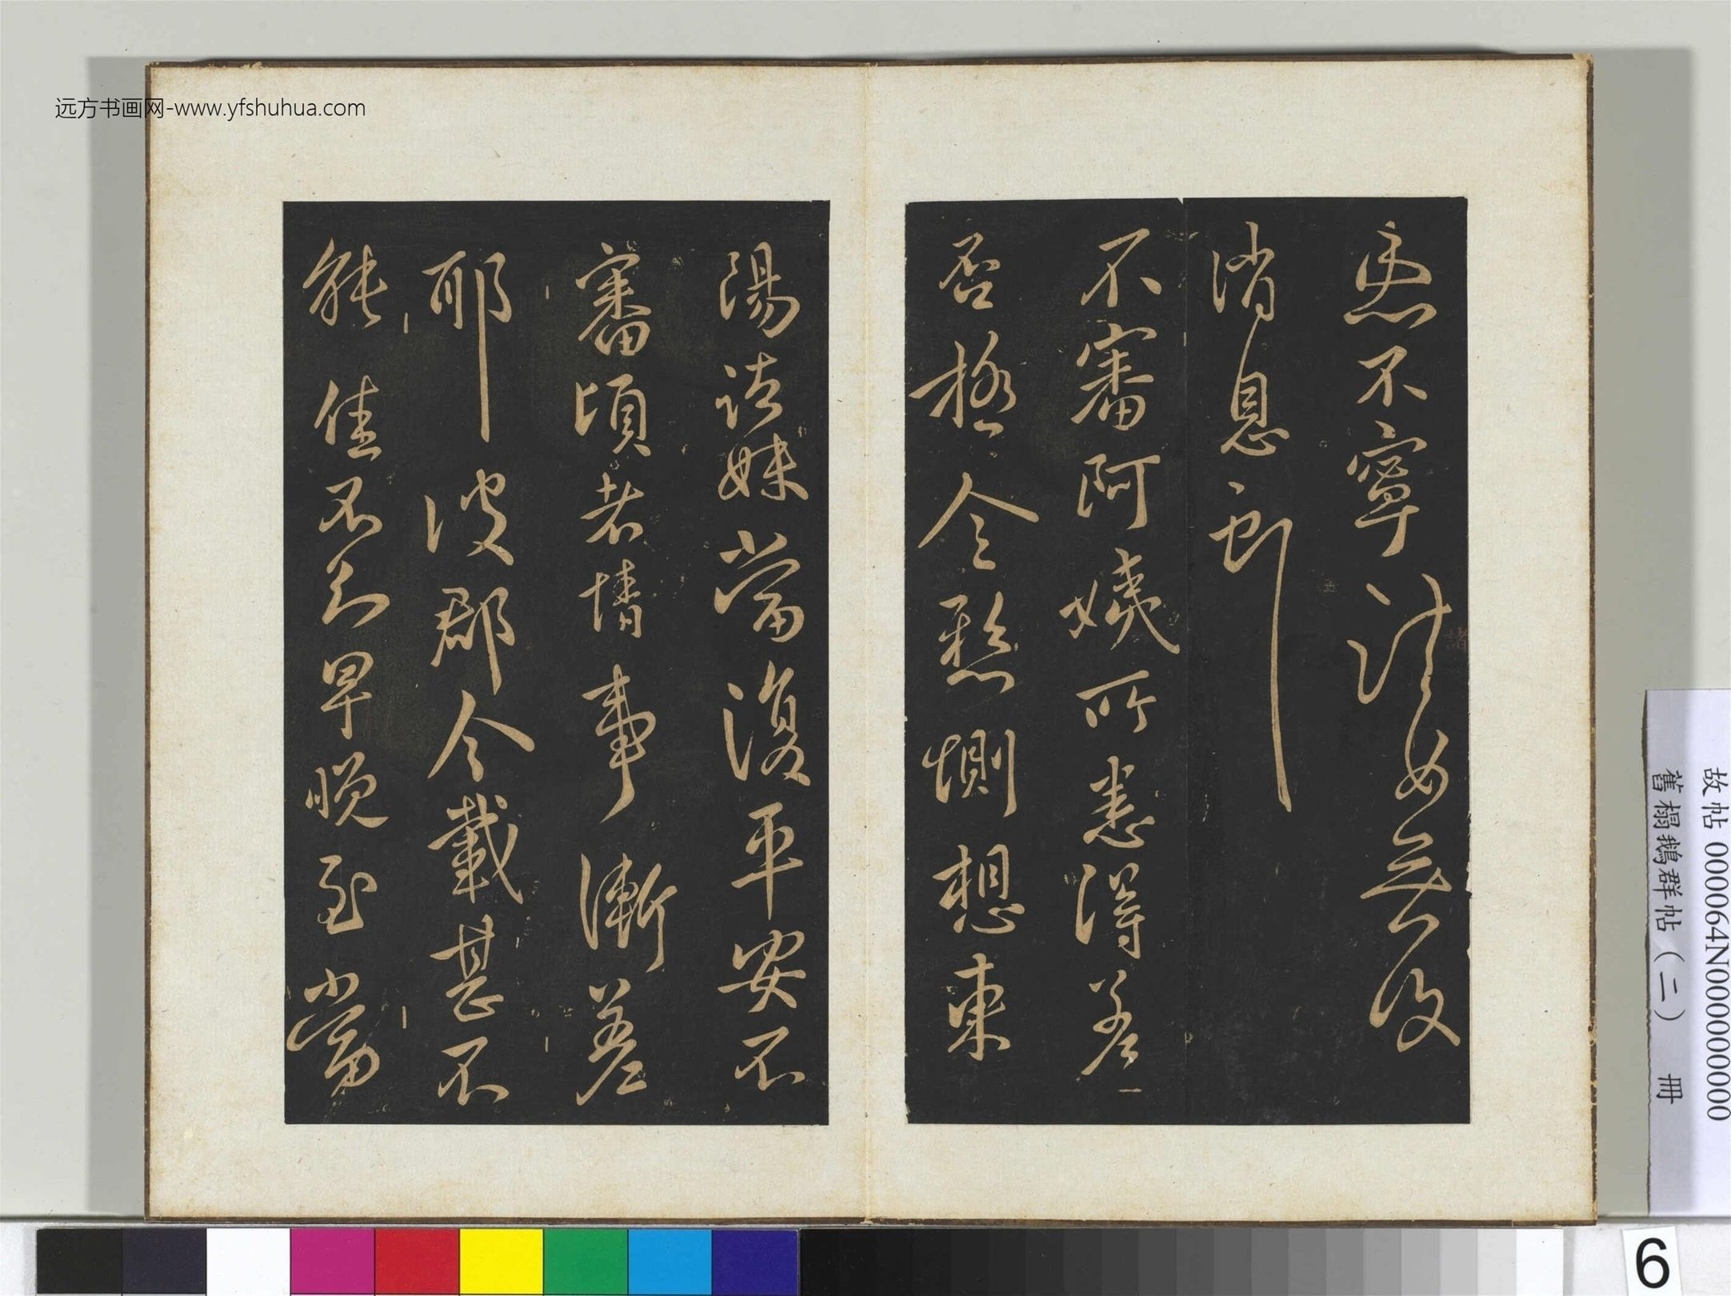 远方书画网-www.yfshuhua.com
患不寧諸女無復
消息耶
不審阿姨所患得差
否極令懸惻想東
陽諸妹當復平安不
審頃者情事漸差
耶彼郡今載甚不
能佳不知早晚至當
故帖 000064N000000000
舊榻鵝群帖(二) 冊
6